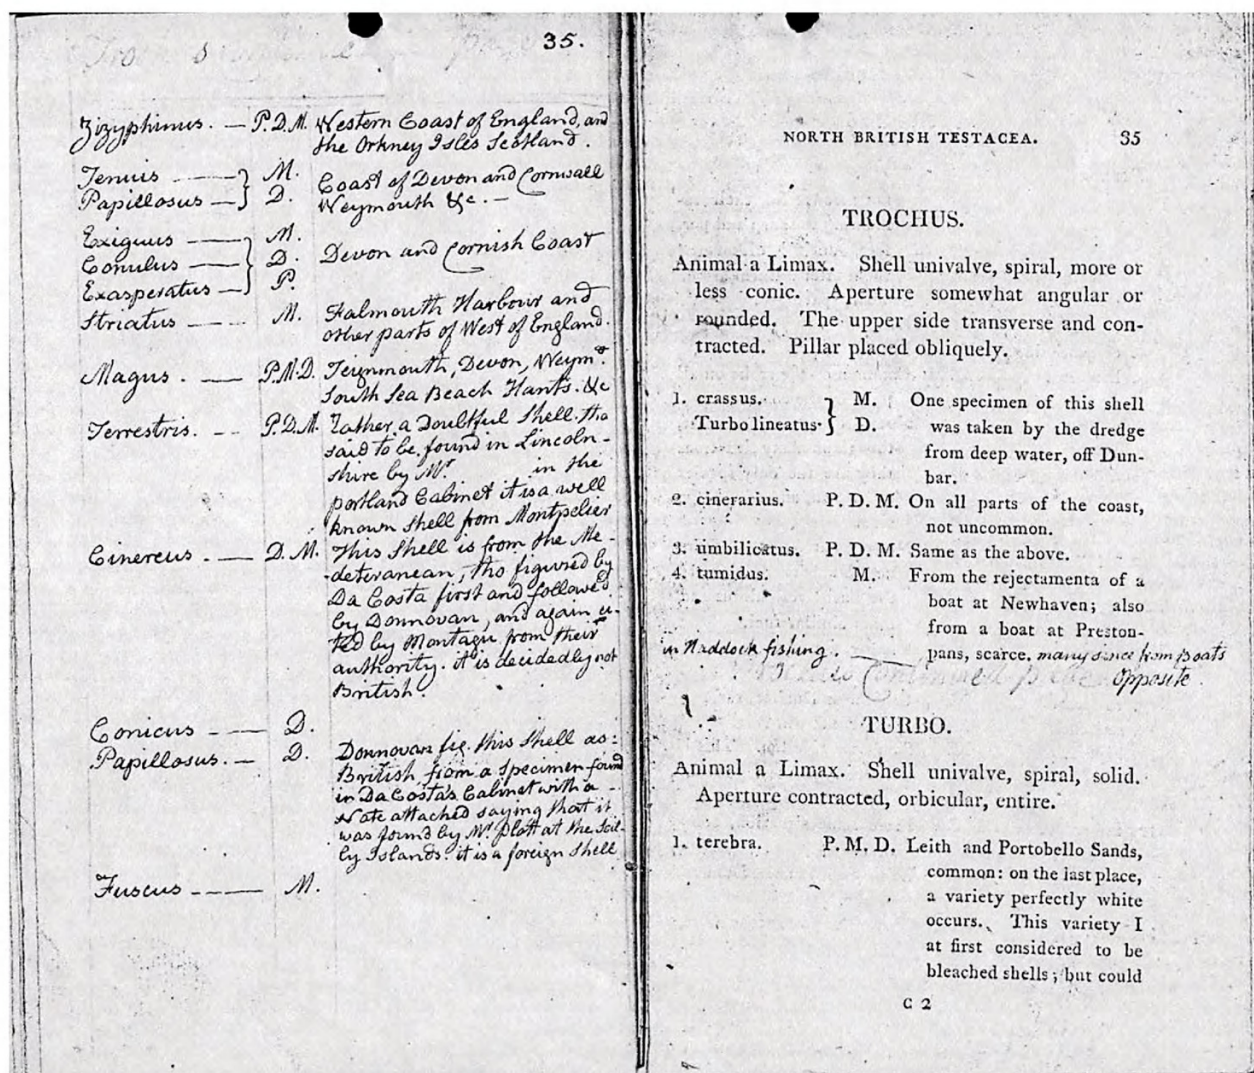 35.
Zizyphinus. — P.D.M. Western Coast of England, and
the Orkney Isles Scotland.
Tenuis ——— } M. Coast of Devon and Cornwall
Papillosus — } D. Weymouth &c. —
Exiguus —— } M.
Conulus —— } D. Devon and Cornish Coast
Exasperatus — } P.
Striatus —— M. Falmouth Harbour and
other parts of West of England.
Magus. — P.M.D. Teignmouth, Devon, Weymth.
South Sea Beach Hants. &c
Terrestris. -- P.D.M. Rather a Doubtful Shell, tho
said to be found in Lincoln-
shire by Mr in the
portland Cabinet it is a well
known Shell from Montpelier
Cinereus. — D.M. This Shell is from the Me-
deteranean, tho figured by
Da Costa first and followed
by Donnovan, and again ci-
ted by Montagu from their
authority. it is decidedly not
British.
Conicus --- D.
Papillosus. — D. Donnovan fig. this Shell as
British from a specimen found
in Da Costa's Cabinet with a
Note attached saying that it
was found by Mr. Platt at the Scil-
ly Islands. it is a foreign Shell
Fuscus ---- M.
NORTH BRITISH TESTACEA. 35
TROCHUS.
Animal a Limax. Shell univalve, spiral, more or
less conic. Aperture somewhat angular or
rounded. The upper side transverse and con-
tracted. Pillar placed obliquely.
1. crassus. } M. One specimen of this shell
Turbo lineatus. } D. was taken by the dredge
from deep water, off Dun-
bar.
2. cinerarius. P. D. M. On all parts of the coast,
not uncommon.
3. umbilicatus. P. D. M. Same as the above.
4. tumidus. M. From the rejectamenta of a
boat at Newhaven; also
from a boat at Preston-
pans, scarce. many since from boats
in Haddock fishing. ——
opposite.
TURBO.
Animal a Limax. Shell univalve, spiral, solid.
Aperture contracted, orbicular, entire.
1. terebra. P. M. D. Leith and Portobello Sands,
common: on the last place,
a variety perfectly white
occurs. This variety I
at first considered to be
bleached shells; but could
C 2